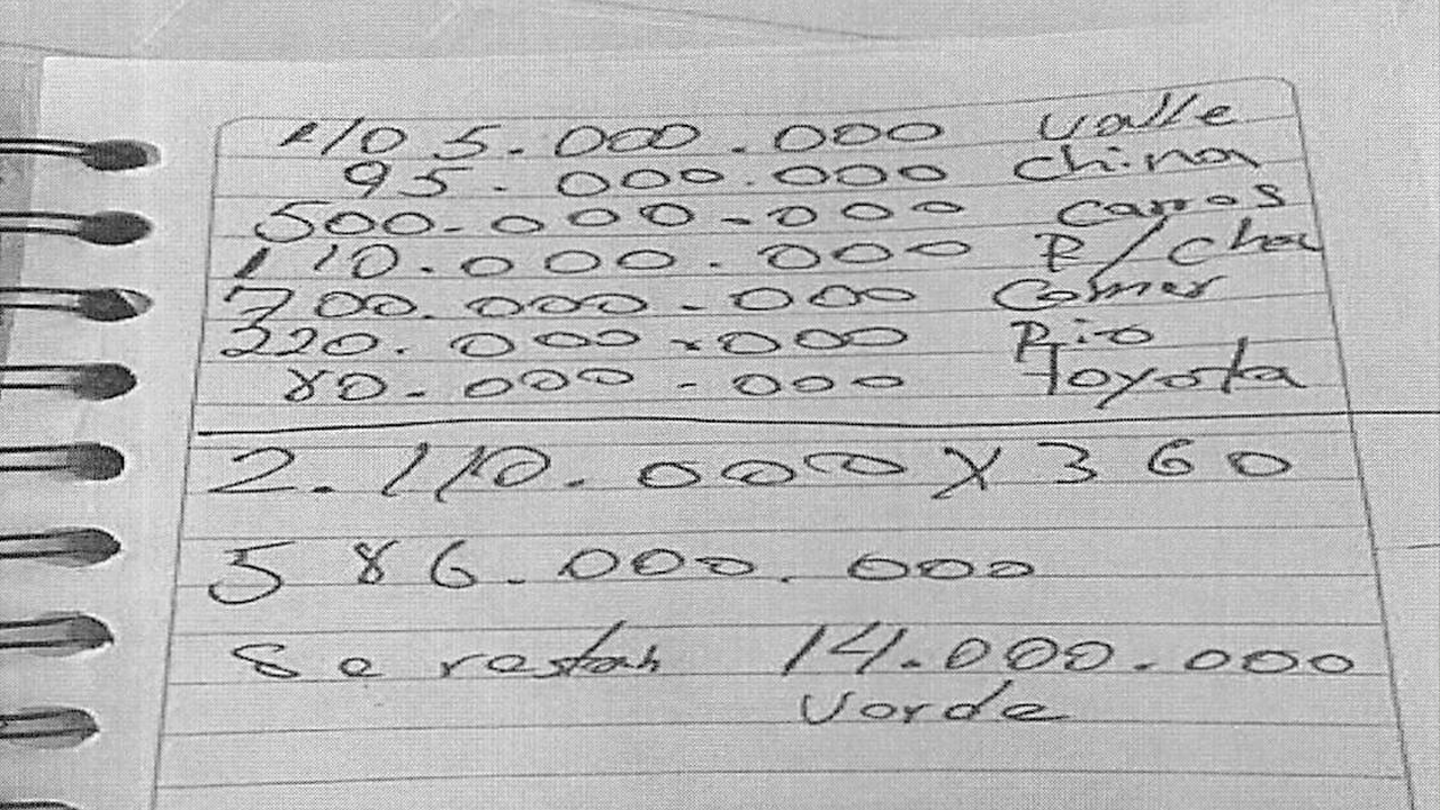 405.000.000 Valle
95.000.000 China
500.000.000 Carros
110.000.000 P/cha
700.000.000 Comer
220.000.000 Rio
80.000.000 Toyota
2.110.000 X 360
586.000.000
Se restan 14.000.000
Verde